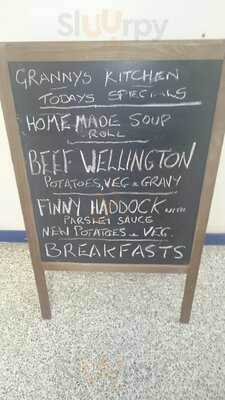 Sluurpy
GRANNYS KITCHEN
TODAYS SPECIALS
HOME MADE SOUP
ROLL
BEEF WELLINGTON
POTATOES, VEG & GRAVY
FINNY HADDOCK WITH
PARSLEY SAUCE
NEW POTATOES & VEG.
BREAKFASTS